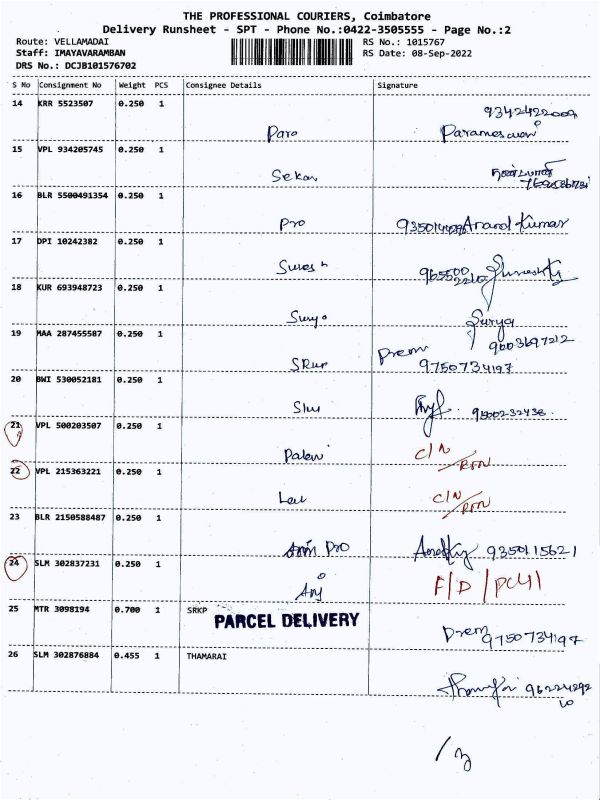 THE PROFESSIONAL COURIERS, Coimbatore
Delivery Runsheet - SPT - Phone No.:0422-3505555 - Page No.:2
Route: VELLAMADAI RS No.: 1015767
Staff: IMAYAVARAMBAN RS Date: 08-Sep-2022
DRS No.: DCJB101576702
S No Consignment No Weight PCS Consignee Details Signature
14 KRR 5523507 0.250 1
9342422009
Paro Parameswari
15 VPL 934205745 0.250 1
Sekar
16 BLR 5500491354 0.250 1
Pro Anand Kumar
17 DPI 10242382 0.250 1
Suresh
18 KUR 693948723 0.250 1
Surya Surya
19 MAA 287455587 0.250 1 9003697212
Prem
SRKP 9750734197
20 BWI 530052181 0.250 1
9500232438
21 VPL 500203507 0.250 1
C/N
RTN
22 VPL 215363221 0.250 1
C/N
RTN
23 BLR 2150588487 0.250 1
Pro 9350115621
24 SLM 302837231 0.250 1
F/D
25 MTR 3098194 0.700 1 SRKP
PARCEL DELIVERY
Prem 9750734197
26 SLM 302876884 0.455 1 THAMARAI